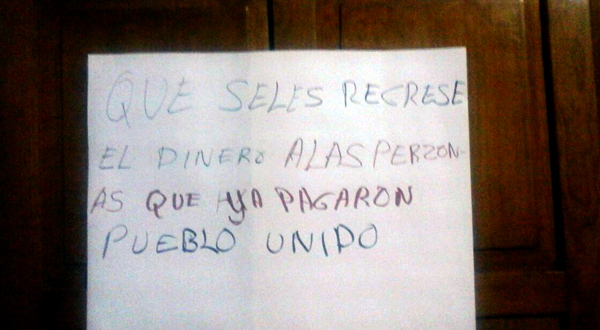 QUE SELES REGRESE
EL DINERO ALAS PERZON-
AS QUE YA PAGARON
PUEBLO UNIDO